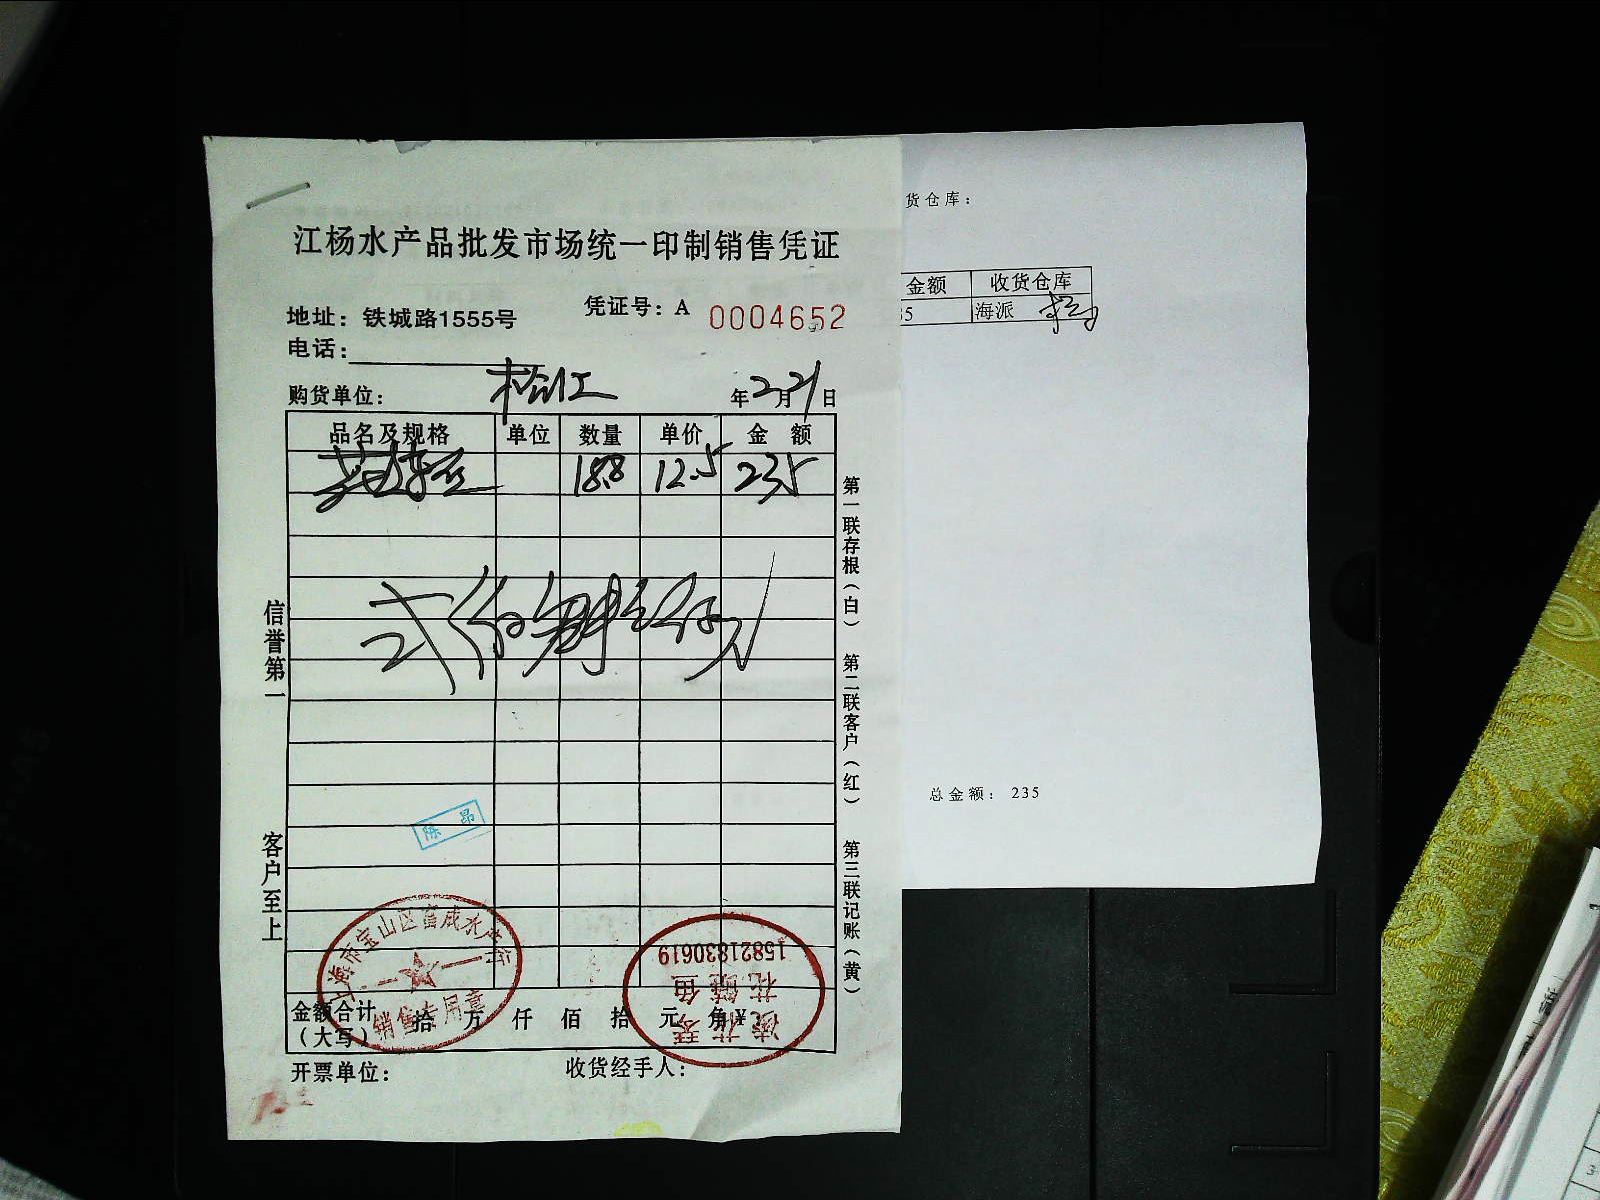 江杨水产品批发市场统一印制销售凭证
地址：铁城路1555号
凭证号：A 0004652
电话：
购货单位： 松江 年2月21日
品名及规格 单位 数量 单价 金额
18.8 12.5 235
信誉第一
客户至上
第一联存根（白） 第二联客户（红） 第三联记账（黄）
陈昂
上海市宝山区 成水产行
销售专用章
15821830619
花鲢鱼
金额合计（大写） 拾 万 仟 佰 拾 元 角 ¥
开票单位： 收货经手人：
货仓库：
金额 收货仓库
35 海派
总金额： 235